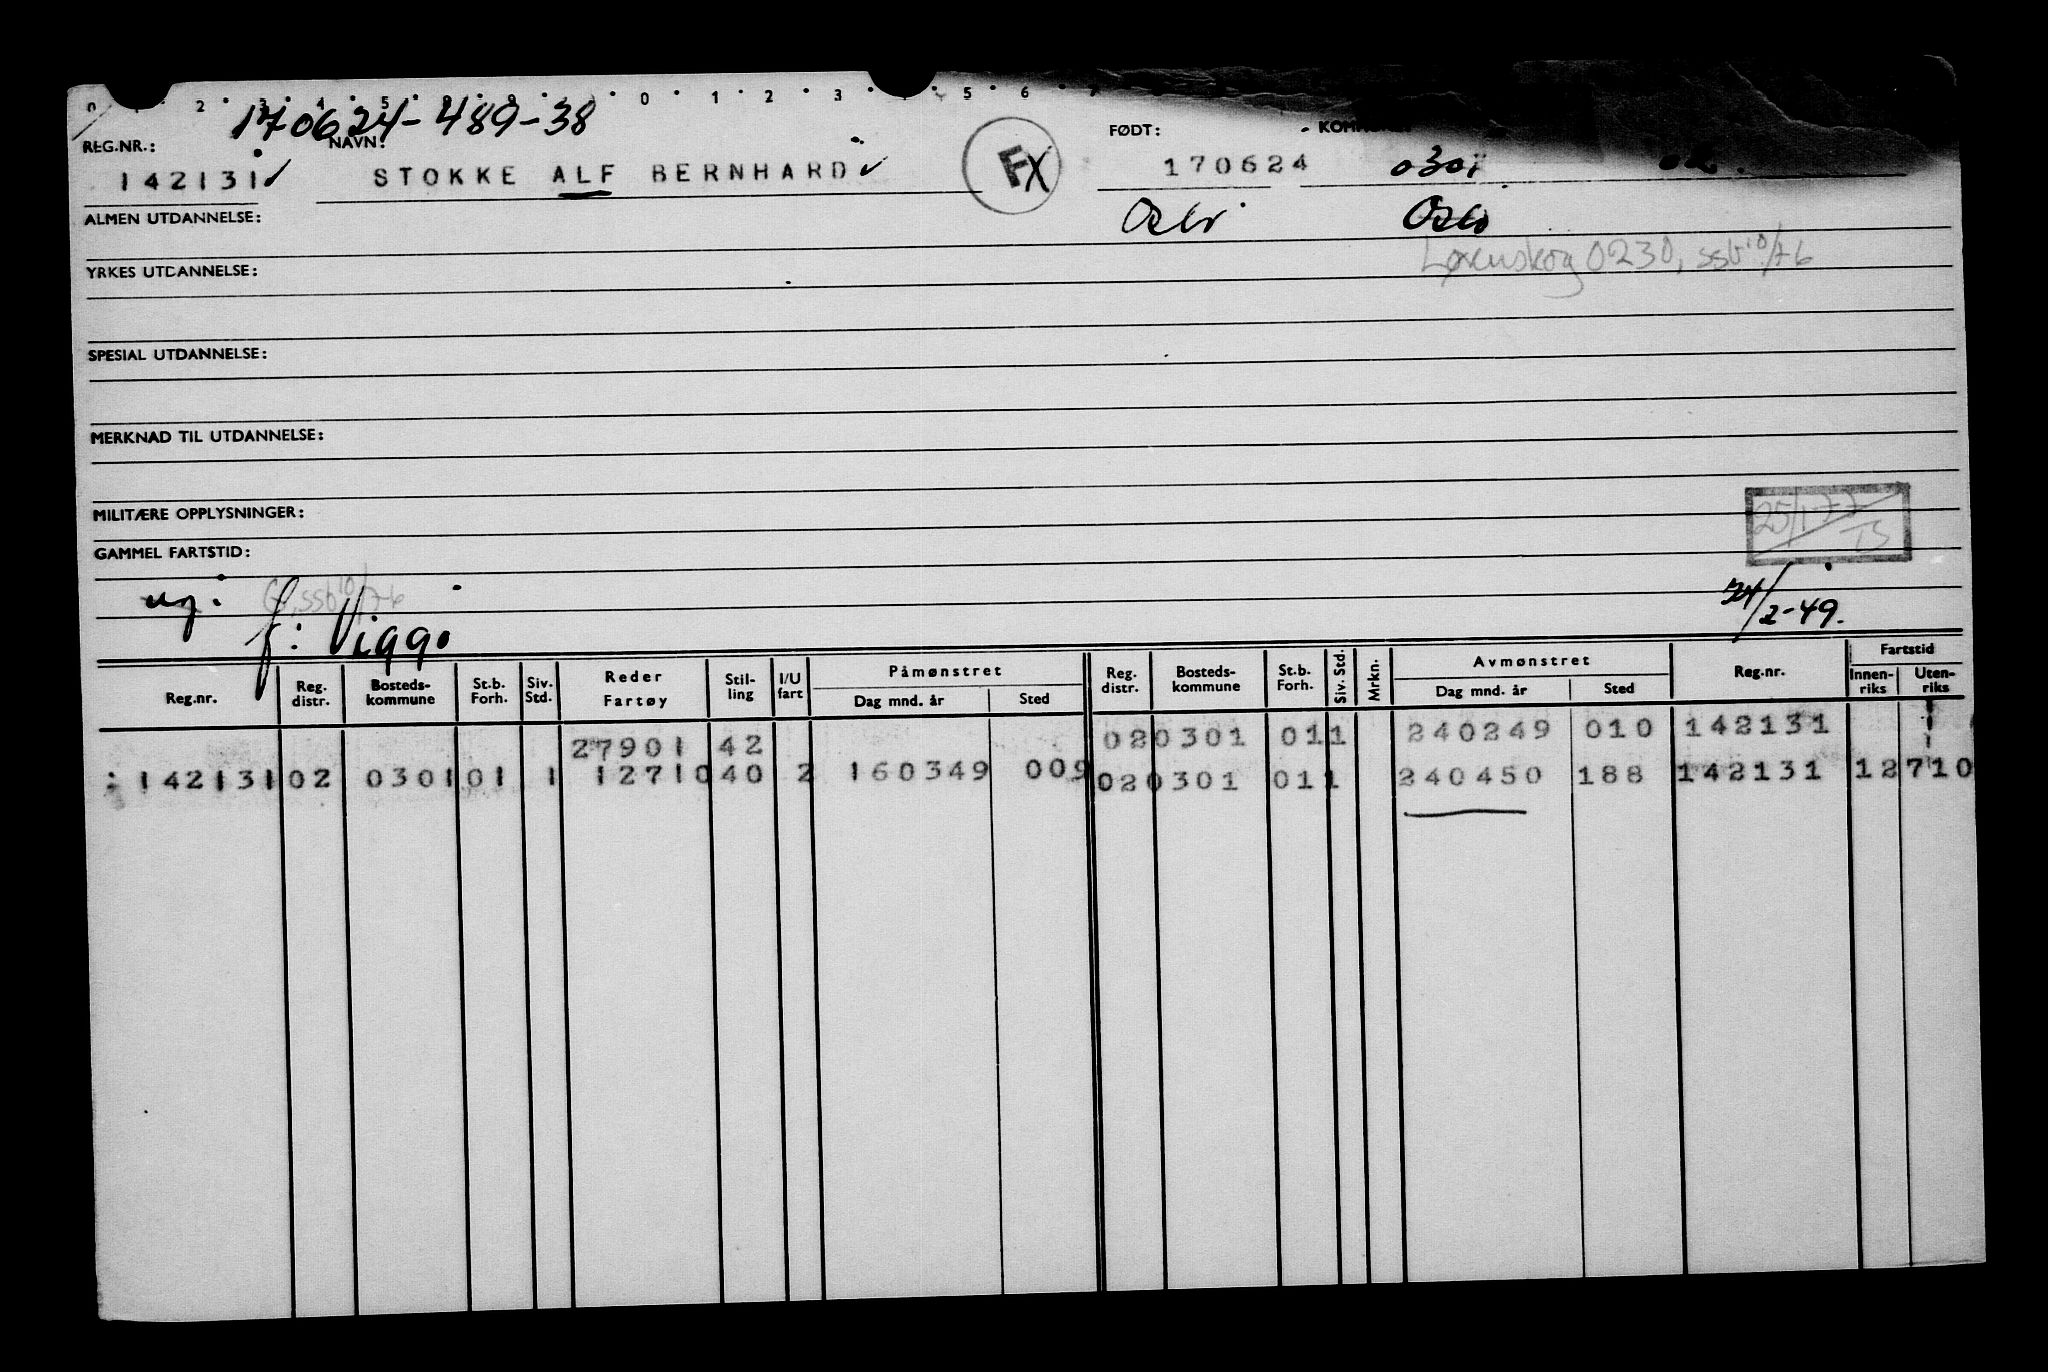 0 1 2 3 4 5 0 1 2 3 5 6 7
170624-489-38
REG.NR.: NAVN: FØDT:
142131 STOKKE ALF BERNHARD FX 170624 0301 02.
ALMEN UTDANNELSE: Oslo Oslo
Lørenskog 0230, ssb 10/76
YRKES UTDANNELSE:
SPESIAL UTDANNELSE:
MERKNAD TIL UTDANNELSE:
MILITÆRE OPPLYSNINGER:
25/1-77 TS
GAMMEL FARTSTID:
ug. G, ssb 10/76
24/2-49.
f: Viggo
Reg.nr. Reg. distr. Bosteds-kommune St.b. Forh. Siv. Std. Reder Fartøy Stil-ling I/U fart Påmønstret Dag mnd. år Sted Reg. distr. Bosteds-kommune St.b. Forh. Siv. Std. Mrkn. Avmønstret Dag mnd. år Sted Reg.nr. Fartstid Innen-riks Uten-riks
27901 42 020301 011 240249 010 142131
142131 02 0301 01 1 12710 40 2 160349 009 020301 011 240450 188 142131 12710